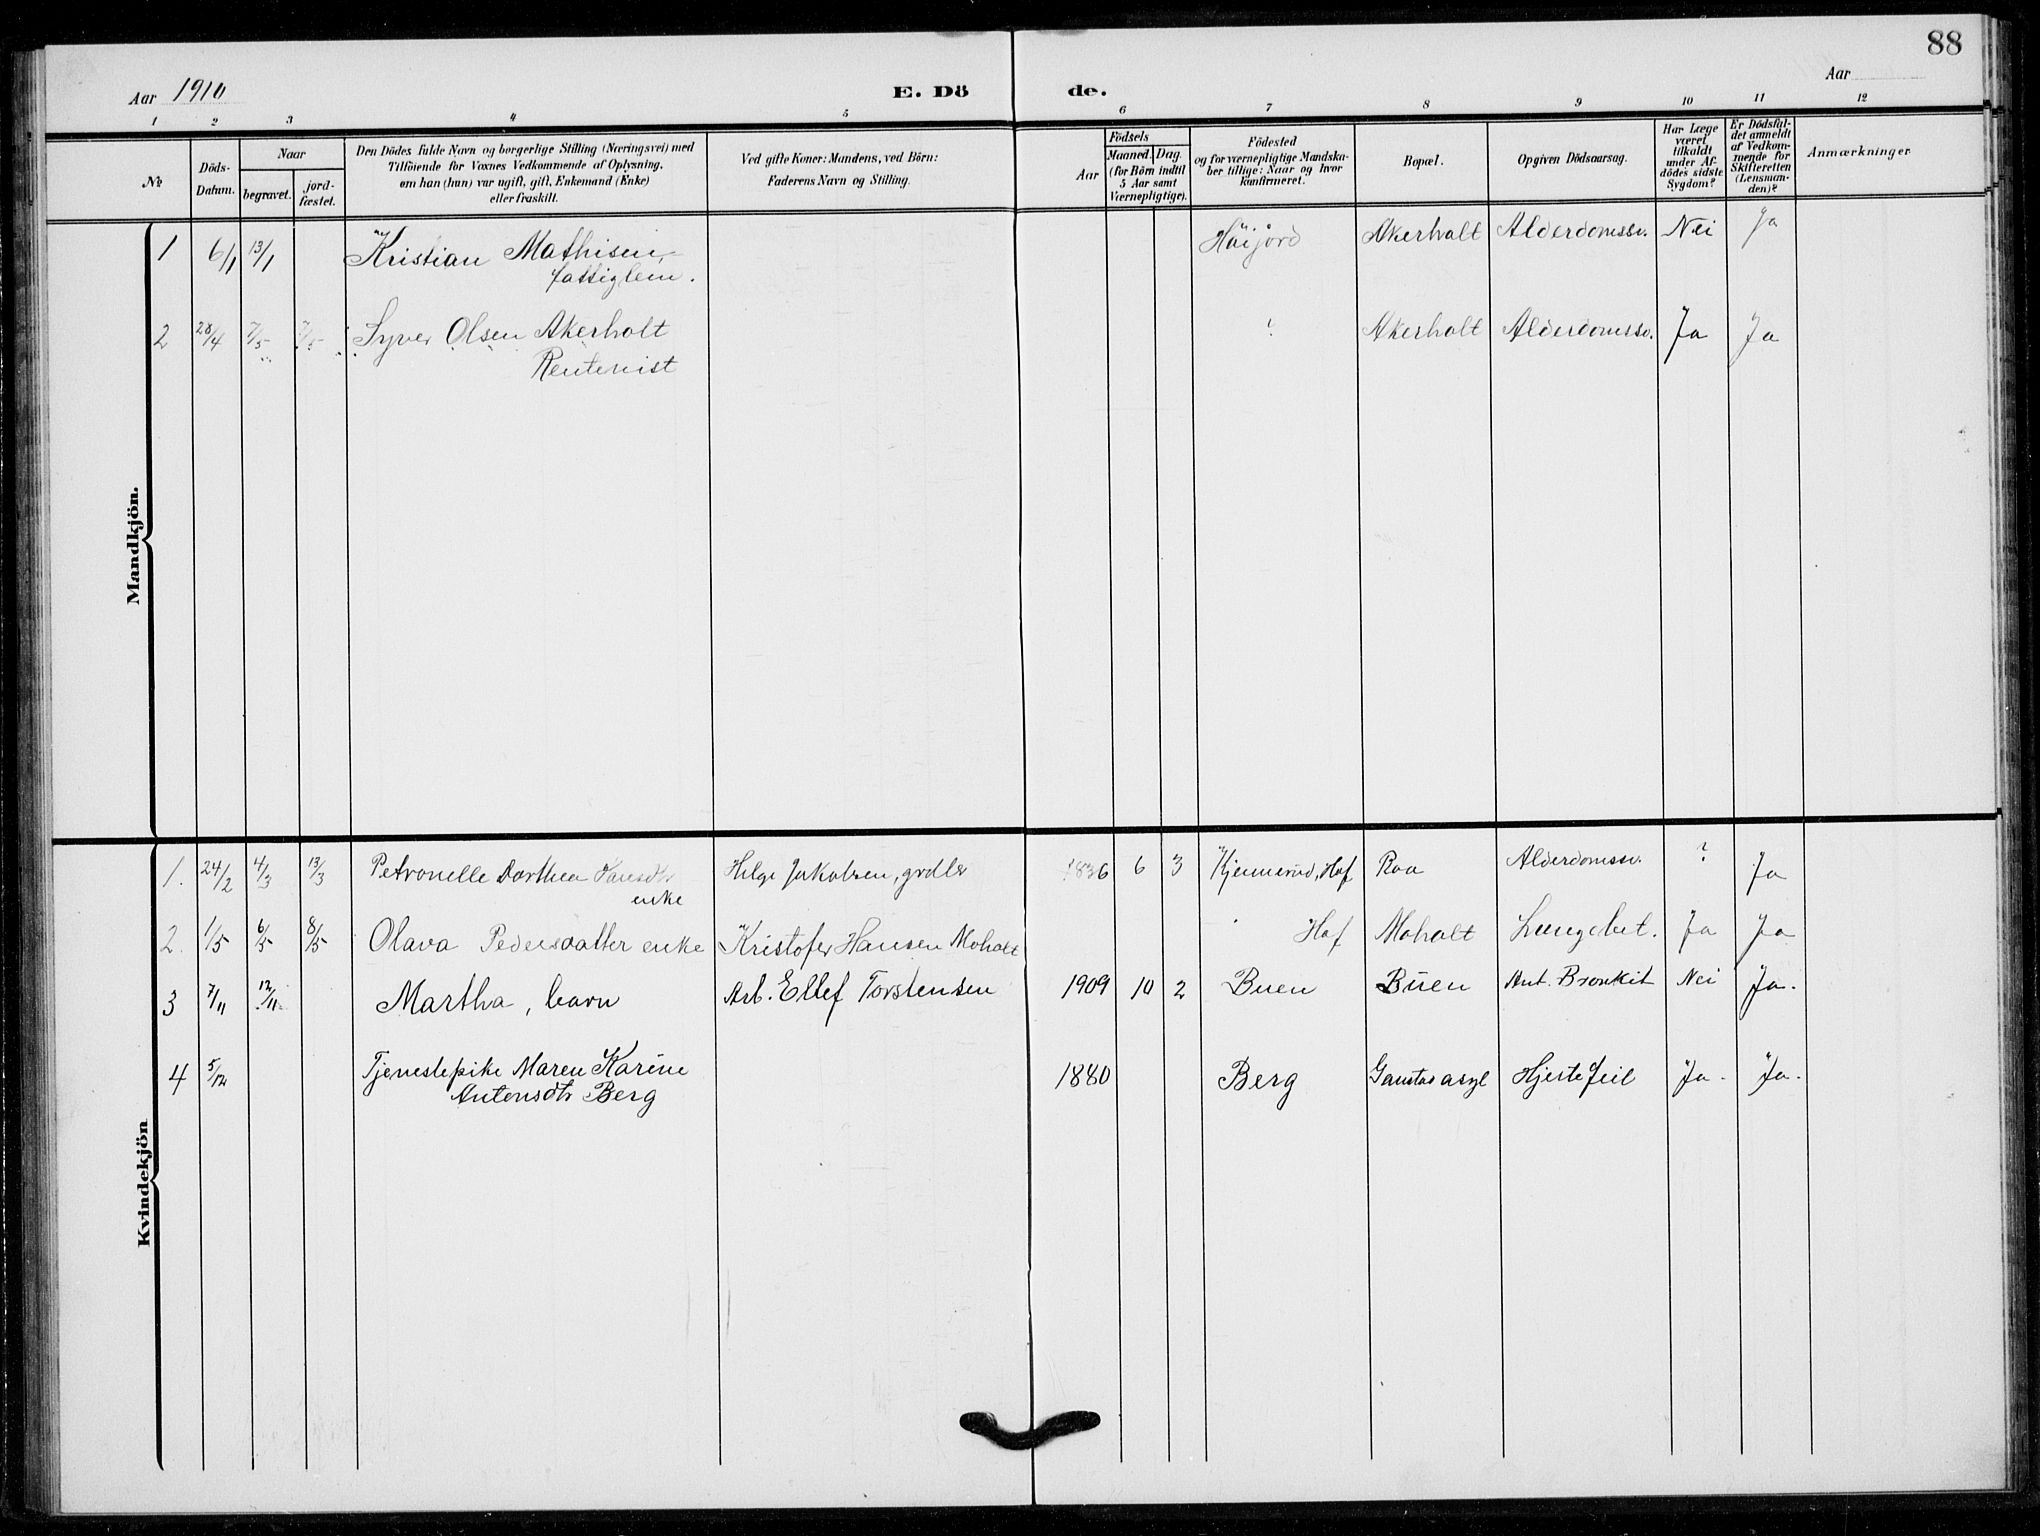 88
Aar 1910
E. Dö de.
Aar
1 2 3 4 5 6 7 8 9 10 11 12
No.
Döds-
Datum.
Naar
begravet.
jord-
fæstet.
Den Dödes fulde Navn og borgerlige Stilling (Næringsvei) med
Tilföiende for Voxnes Vedkommende af Oplysning,
om han (hun) var ugift, gift, Enkemand (Enke)
eller fraskilt.
Ved gifte Koner: Mandens, ved Börn:
Faderens Navn og Stilling.
Födsels
Aar
Maaned. Dag.
(for Börn indtil
5 Aar samt
Værnepligtige).
Födested
og for værnepligtige Mandska-
ber tillige: Naar og hvor
konfirmeret.
Bopæl.
Opgiven Dödsaarsag.
Har Læge
været
tilkaldt
under Af-
dödes sidste
Sygdom?
Er Dödsfal-
det anmeldt
af Vedkom-
mende for
Skifteretten
(Lensman-
den)?
Anmærkninger
Mandkjön.
1 6/1 13/1 Kristian Mathisen, Höijord Akerholt Alderdomssv. Nei Ja
fattiglem.
2 28/4 7/5 7/5 Syver Olsen Akerholt ? Akerholt Alderdomssv. Ja Ja
Rentenist
Kvindekjön
1. 24/2 4/3 13/3 Petronelle Dorthea Helge Jakobsen, grdbr 1836 6 3 Kjennerud, Hof Raa Alderdomssv. ? Ja
enke
2. 1/5 6/5 8/5 Olava Pedersdatter enke Kristofer Hansen Moholt Hof Moholt Lungebet. Ja Ja
3 7/11 12/11 Martha, barn Arb. Ellef Torstensen 1909 10 2 Buen Buen Aut. Bronkit Nei Ja.
4 5/12 Tjenestepike Maren Karine 1880 Berg Gaustad asyl Hjertefeil Ja. Ja.
Antonsdtr Berg